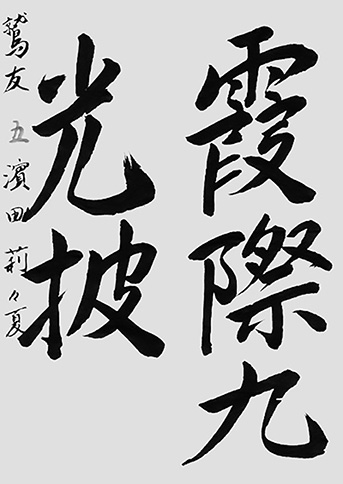 霞際九
光披
鷲友 五 濱田 莉々夏